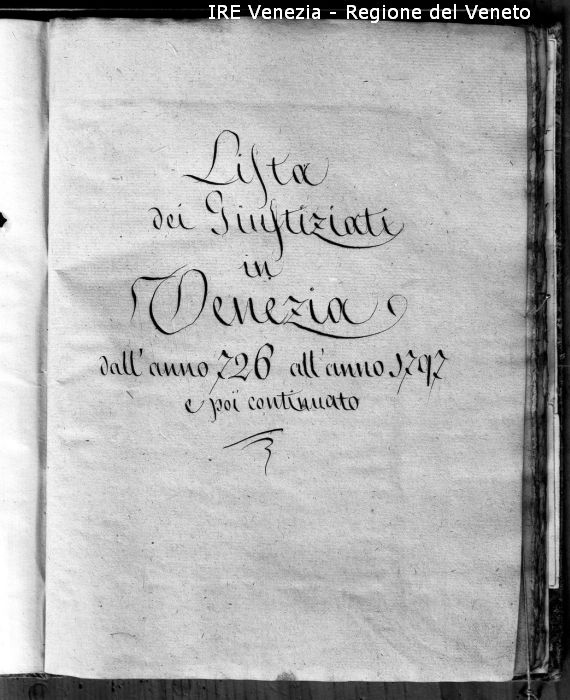 IRE Venezia - Regione del Veneto
Lista
dei Giustiziati
in
Venezia
dall'anno 726 all'anno 1797
e poi continuato